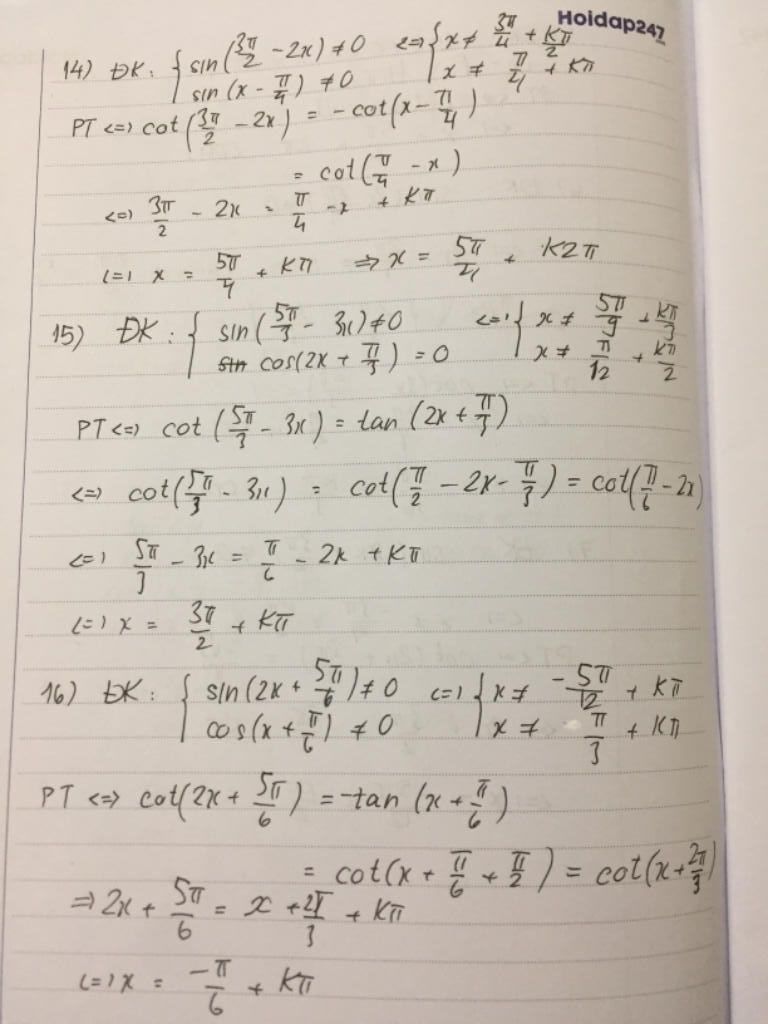 Hoidap247
14) ĐK: { sin(3π/2 - 2x) ≠ 0 <=> { x ≠ 3π/4 + kπ/2
sin(x - π/4) ≠ 0 x ≠ π/4 + kπ
PT <=> cot(3π/2 - 2x) = -cot(x - π/4)
= cot(π/4 - x)
<=> 3π/2 - 2x = π/4 - x + kπ
<=> x = 5π/4 + kπ => x = 5π/4 + k2π
15) ĐK: { sin(5π/3 - 3x) ≠ 0 <=> { x ≠ 5π/9 + kπ/3
sin cos(2x + π/3) = 0 x ≠ π/12 + kπ/2
PT <=> cot(5π/3 - 3x) = tan(2x + π/3)
<=> cot(5π/3 - 3x) = cot(π/2 - 2x - π/3) = cot(π/6 - 2x)
<=> 5π/3 - 3x = π/6 - 2x + kπ
<=> x = 3π/2 + kπ
16) ĐK: { sin(2x + 5π/6) ≠ 0 <=> { x ≠ -5π/12 + kπ
cos(x + π/6) ≠ 0 x ≠ π/3 + kπ
PT <=> cot(2x + 5π/6) = -tan(x + π/6)
= cot(x + π/6 + π/2) = cot(x + 2π/3)
=> 2x + 5π/6 = x + 2π/3 + kπ
<=> x = -π/6 + kπ